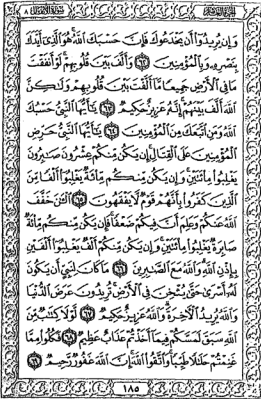 الجزء العاشر سورة الأنفال ٨
وَإِن يُرِيدُوٓا۟ أَن يَخْدَعُوكَ فَإِنَّ حَسْبَكَ ٱللَّهُ هُوَ ٱلَّذِىٓ أَيَّدَكَ
بِنَصْرِهِۦ وَبِٱلْمُؤْمِنِينَ ٦٢ وَأَلَّفَ بَيْنَ قُلُوبِهِمْ لَوْ أَنفَقْتَ
مَا فِى ٱلْأَرْضِ جَمِيعًا مَّآ أَلَّفْتَ بَيْنَ قُلُوبِهِمْ وَلَـٰكِنَّ
ٱللَّهَ أَلَّفَ بَيْنَهُمْ إِنَّهُۥ عَزِيزٌ حَكِيمٌ ٦٣ يَـٰٓأَيُّهَا ٱلنَّبِىُّ حَسْبُكَ
ٱللَّهُ وَمَنِ ٱتَّبَعَكَ مِنَ ٱلْمُؤْمِنِينَ ٦٤ يَـٰٓأَيُّهَا ٱلنَّبِىُّ حَرِّضِ
ٱلْمُؤْمِنِينَ عَلَى ٱلْقِتَالِ إِن يَكُن مِّنكُمْ عِشْرُونَ صَـٰبِرُونَ
يَغْلِبُوا۟ مِا۟ئَتَيْنِ وَإِن يَكُن مِّنكُم مِّا۟ئَةٌ يَغْلِبُوٓا۟ أَلْفًا مِّنَ
ٱلَّذِينَ كَفَرُوا۟ بِأَنَّهُمْ قَوْمٌ لَّا يَفْقَهُونَ ٦٥ ٱلْـَٔـٰنَ خَفَّفَ
ٱللَّهُ عَنكُمْ وَعَلِمَ أَنَّ فِيكُمْ ضَعْفًا فَإِن يَكُن مِّنكُم مِّا۟ئَةٌ
صَابِرَةٌ يَغْلِبُوا۟ مِا۟ئَتَيْنِ وَإِن يَكُن مِّنكُمْ أَلْفٌ يَغْلِبُوٓا۟ أَلْفَيْنِ
بِإِذْنِ ٱللَّهِ وَٱللَّهُ مَعَ ٱلصَّـٰبِرِينَ ٦٦ مَا كَانَ لِنَبِىٍّ أَن يَكُونَ
لَهُۥٓ أَسْرَىٰ حَتَّىٰ يُثْخِنَ فِى ٱلْأَرْضِ تُرِيدُونَ عَرَضَ ٱلدُّنْيَا
وَٱللَّهُ يُرِيدُ ٱلْـَٔاخِرَةَ وَٱللَّهُ عَزِيزٌ حَكِيمٌ ٦٧ لَّوْلَا كِتَـٰبٌ مِّنَ
ٱللَّهِ سَبَقَ لَمَسَّكُمْ فِيمَآ أَخَذْتُمْ عَذَابٌ عَظِيمٌ ٦٨ فَكُلُوا۟ مِمَّا
غَنِمْتُمْ حَلَـٰلًا طَيِّبًا وَٱتَّقُوا۟ ٱللَّهَ إِنَّ ٱللَّهَ غَفُورٌ رَّحِيمٌ ٦٩
١٨٥